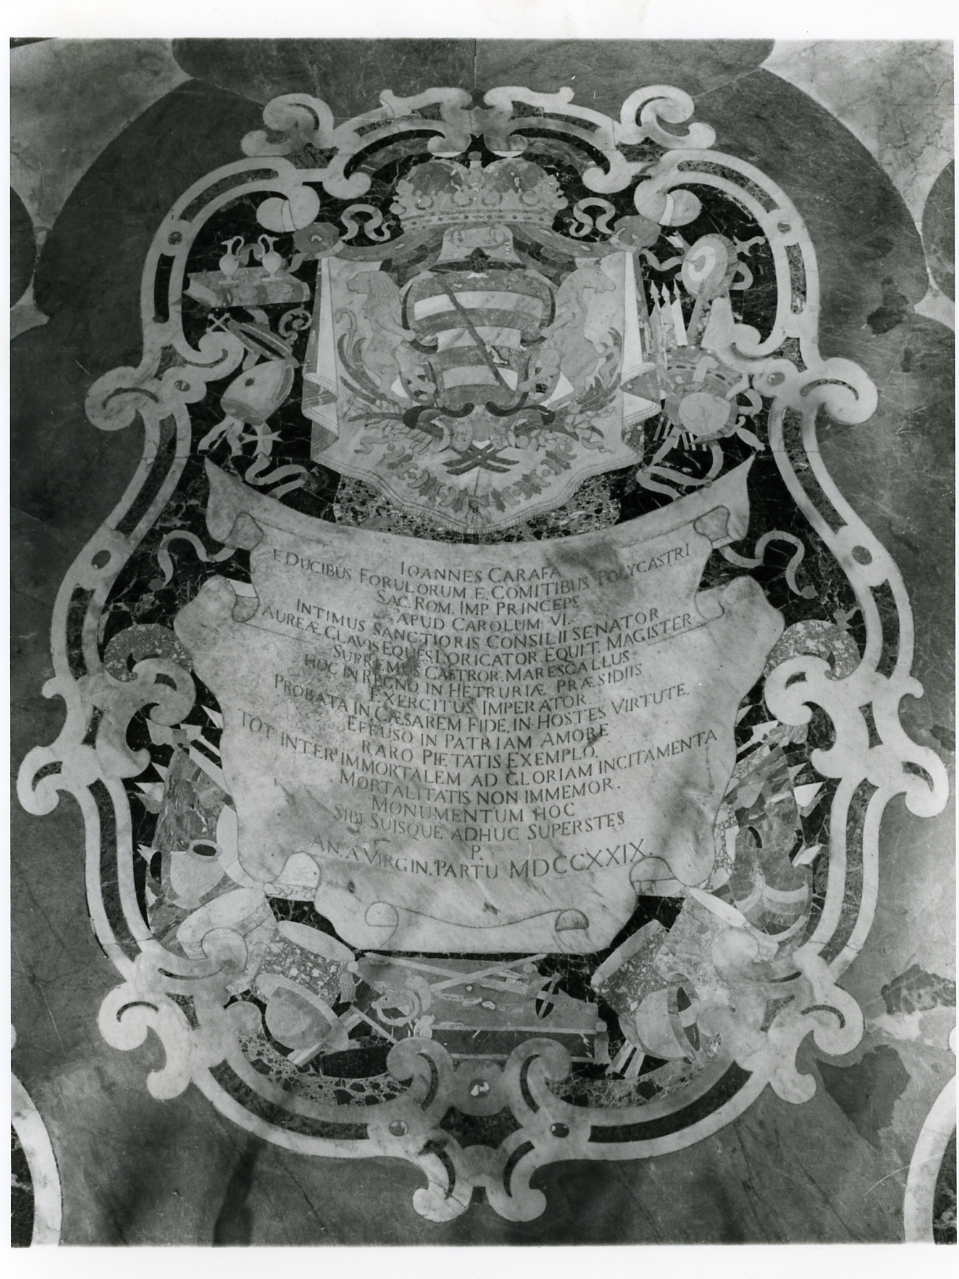 IOANNES CARAFA
E DUCIBUS FORULORUM E COMITIBUS POLYCASTRI
SAC. ROM. IMP. PRINCEPS
APUD CAROLUM VI.
INTIMUS SANCTIORIS CONSILII SENATOR
AUREÆ CLAVIS EQUES LORICATOR. EQUIT. MAGISTER
SUPREMUS CASTROR. MARESCALLUS
HOC IN REGNO IN HETRURIÆ PRÆSIDIIS
EXERCITUS IMPERATOR.
PROBATA IN CÆSAREM FIDE, IN HOSTES VIRTUTE.
EFFUSO IN PATRIAM AMORE
RARO PIETATIS EXEMPLO,
TOT INTER IMMORTALEM AD GLORIAM INCITAMENTA
MORTALITATIS NON IMMEMOR.
MONUMENTUM HOC
SIBI SUISQUE ADHUC SUPERSTES
P.
AN. A VIRGIN. PARTU MDCCXXIX.